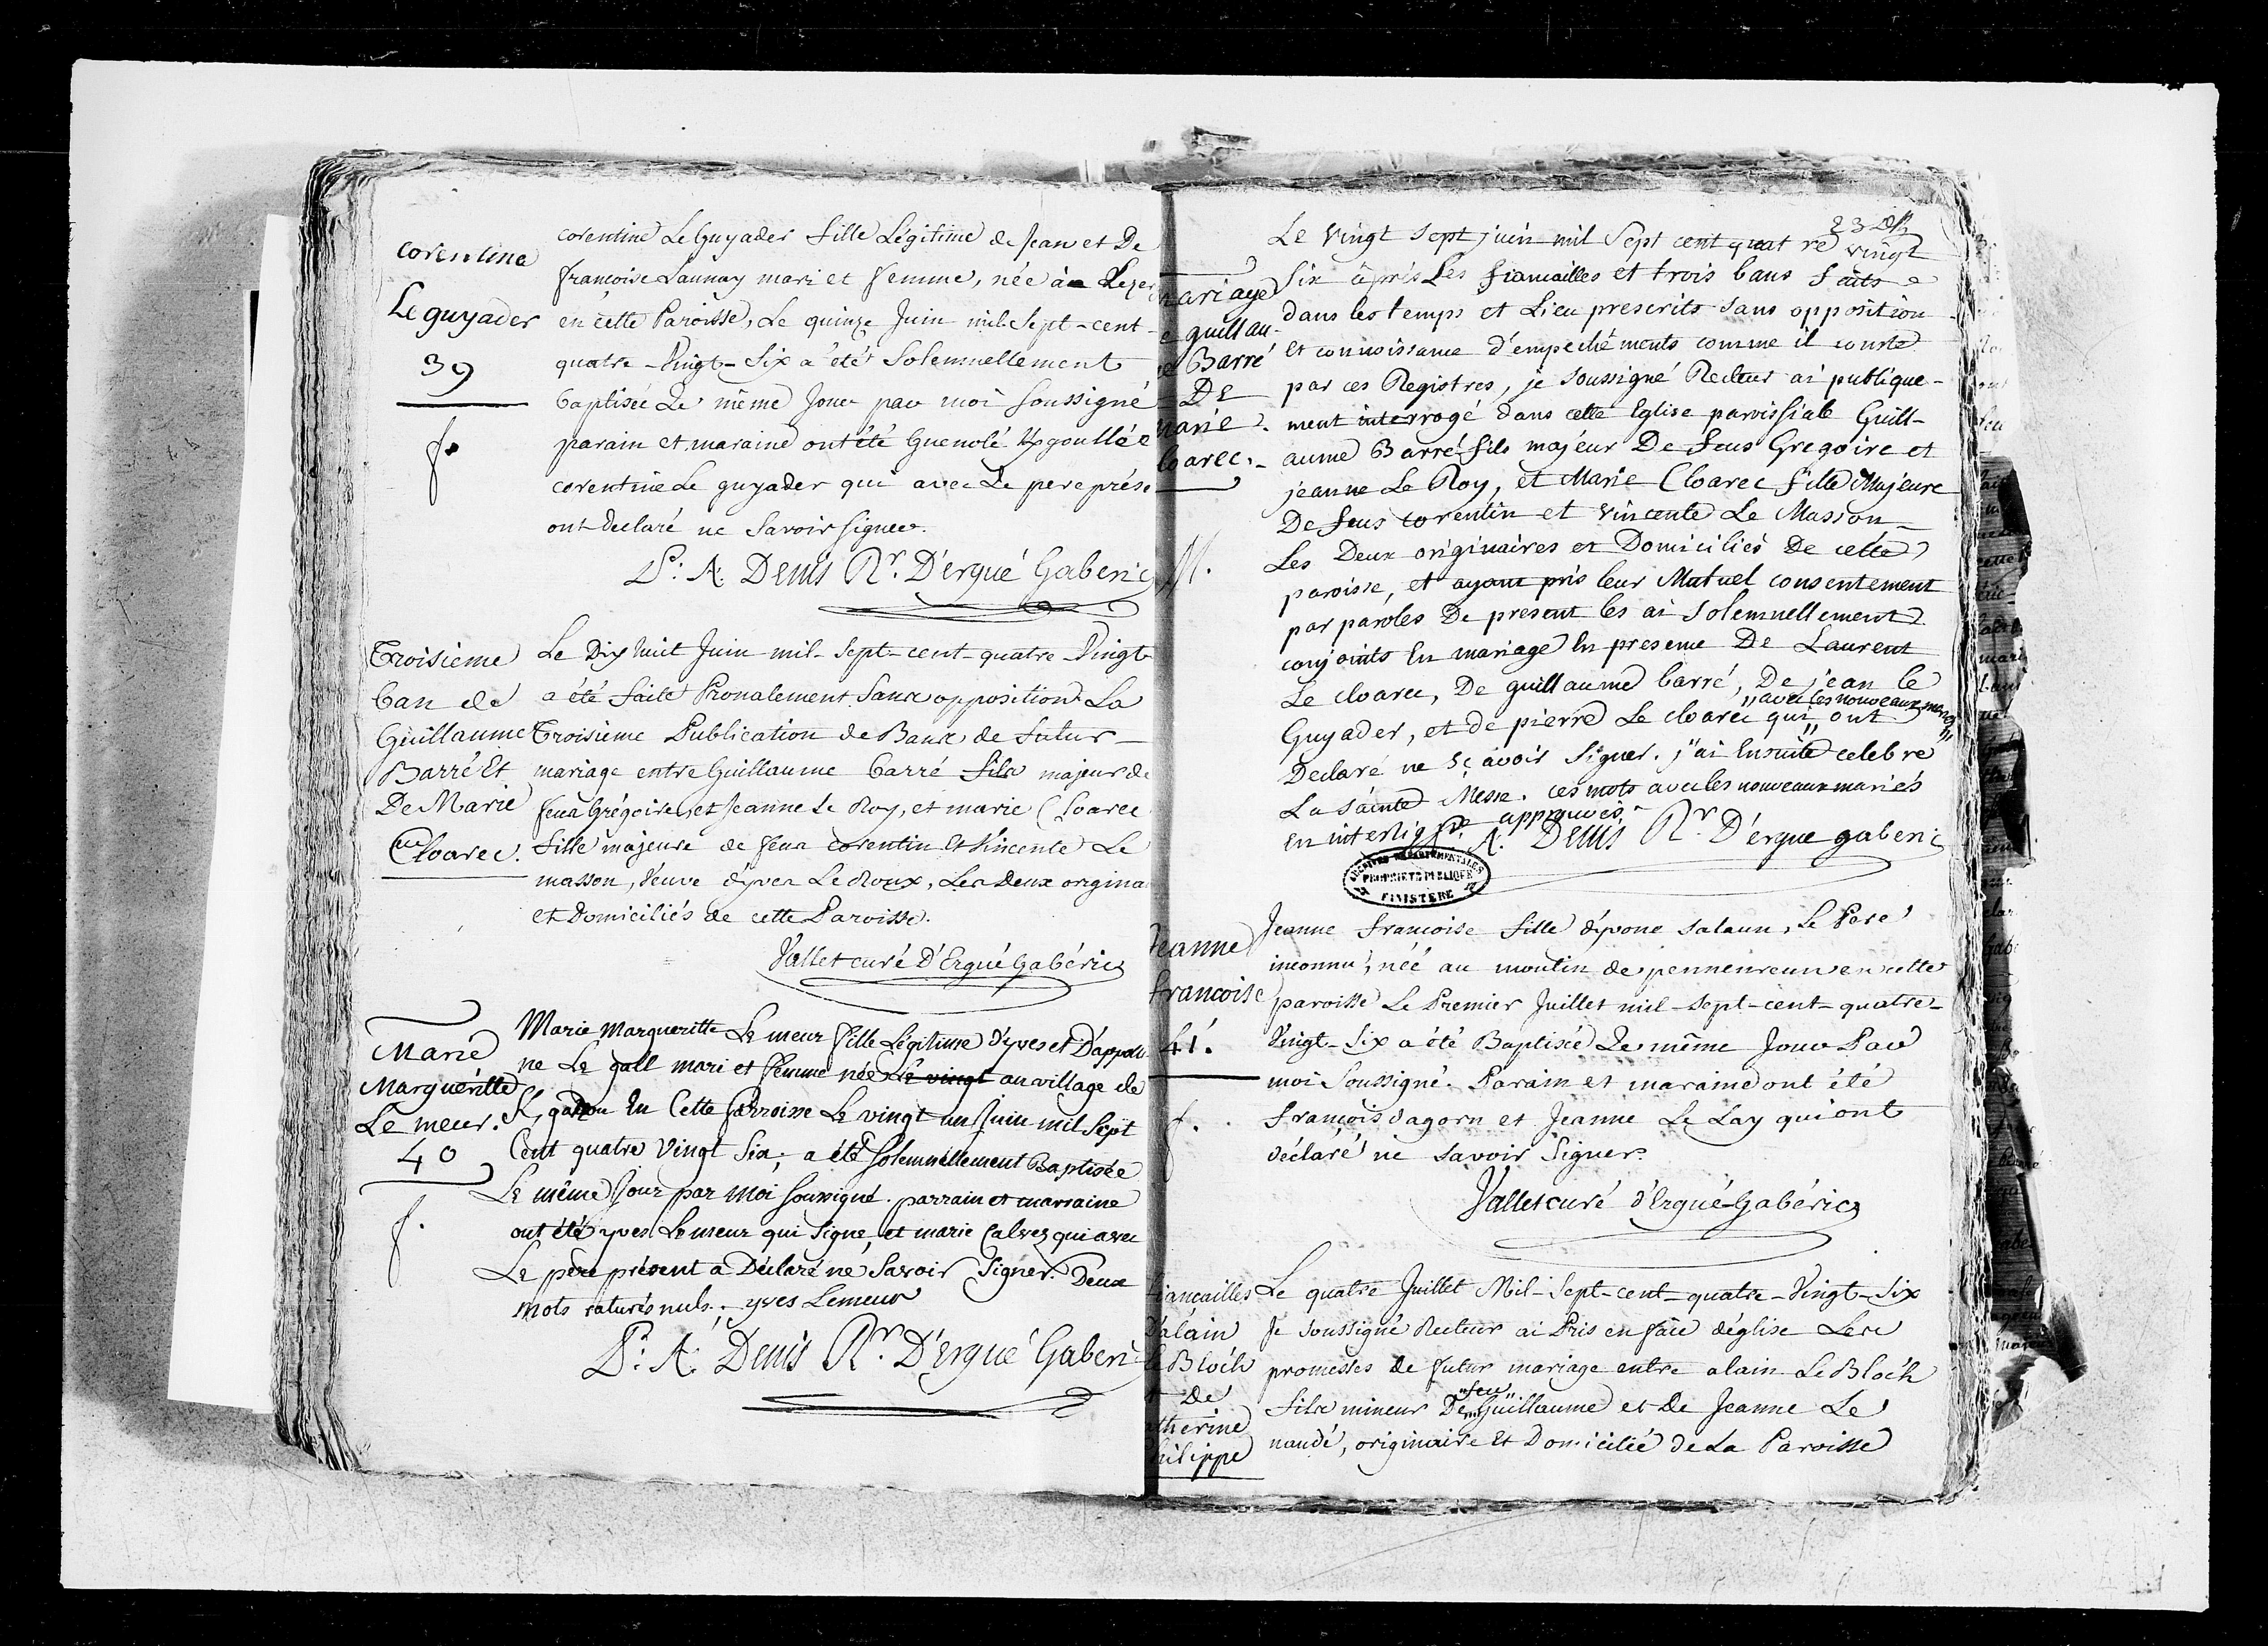 corentine
Le guyader
39
f.
corentine Le Guyader fille Légitime de Jean et De
françoise Launay mari et femme, née à Lezer
en cette Paroisse, Le quinze Juin mil-Sept-cent-
quatre-Vingt-Six a été Solemnellement
baptisée Le même Jour par moi soussigné
parain et maraine ont été Guenolé goullé e
corentine Le guyader qui avec Le pere prése
ont declaré ne Savoir signer.
P: A: Denis Rr. D'ergué Gaberic
Troisieme
ban de
Guillaume
Barré Et
De Marie
Cloarec.
Le Dix huit Juin mil-Sept-cent-quatre-Vingt
a été faite Pronalement Sans opposition La
Troisieme Publication de Bans de futur
mariage entre Guillaume barré fils majeur de
feus Grégoire et Jeanne Le Roy, et marie Cloarec
fille majeure de feus corentin Et Vincente Le
masson, Veuve d'yves Le Roux, Les Deux origina
et Domiciliés de cette Paroisse.
Vallet curé D'Ergué Gabéric
Marie
Marguéritte
Le meur.
40
f.
Marie Margueritte Le meur fille Légitime d'yves et D'appoli-
ne Le gall mari et femme née Le vingt au village de
en Cette Parroisse Le vingt un Juin mil Sept
Cent quatre Vingt Six; a été Solemnellement Baptisée
Le même Jour par Moi Soussigné. parrain et marraine
ont été yves Le meur qui Signe, et marie Calvez qui avec
Le père présent a Déclaré ne Savoir Signer. Deux
mots raturés nuls. yves Lemeur
P: A: Denis Rr. D'Ergué Gaberic
23
mariage
e guillau-
e Barré
De
marie
loarec.
M.
Le vingt sept juin mil Sept cent quatre vingt
Six après Les fiancailles et trois bans faits
dans les temps et Lieu prescrits sans opposition
et connoissance d'empechéments comme il conste
par ces Registres, je soussigné Recteur ai publique-
ment interrogé dans cette Eglise paroissiale Guill-
aume Barré fils majeur De feus Gregoire et
jeanne Le Roy, et Marie Cloarec fille Majeure
De feus corentin et vincente Le Masson
Les Deux originaires et Domiciliés De cette
paroisse, et ayant pris leur Mutuel consentement
par paroles De present les ai solemnellement
conjoints En mariage En presence De Laurent
Le cloarec, De guillaume barré, De jean le
"avec les nouveaux mariés"
Guyader, et de pierre Le cloarec qui ont
Declaré ne sçavoir Signer. j'ai Ensuite celebré
La sainte Messe. ces mots avec les nouveaux mariés
en interligne approuvés.
A. Denis Rr D'ergue gaberic
ARCHIVES DÉPARTEMENTALES
PROPRIÉTÉ PUBLIQUE
FINISTÈRE
Jeanne
francoise
41.
f.
Jeanne francoise fille d'yvone salaun, Le Pere
inconnu, née au moulin de pennenreun en cette
paroisse Le Premier Juillet mil-sept-cent-quatre-
Vingt-Six a été Baptisée Le même Jour Par
moi Soussigné. Parain et maraine ont été
françois dagorn et Jeanne Le Lay qui ont
déclaré ne savoir Signer.
Vallet curé d'Ergué-Gabéric
fiancailles
D'alain
Le Bloc'h
et de
therine
hilippe
Le quatre Juillet Mil-Sept-cent-quatre-Vingt-Six
Je soussigné Recteur ai Pris en face d'église Les
promesses de futur mariage entre alain Le Bloc'h
"feu"
fils mineur De Guillaume et de Jeanne Le
naudé, originaire Et Domicilié de La Paroisse